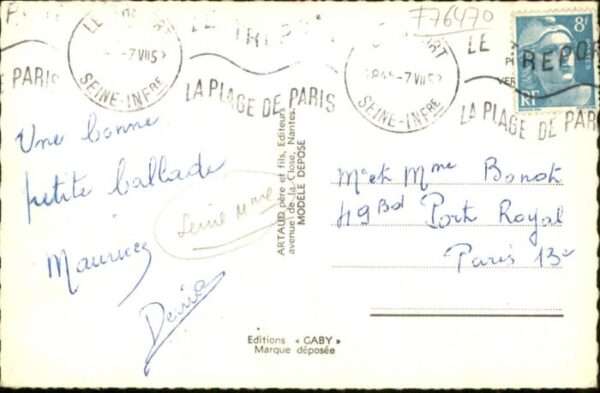 F76470
LE TREPORT
-7 VII 5
SEINE-INFRE
LA PLAGE DE PARIS
LE TREPORT
1845 -7 VII 52
SEINE-INFRE
LE
REPOR
LA PLAGE DE PARI
PARIS
8F
RF
Une bonne
petite ballade
Maurice
Denise
Seine Mme
ARTAUD père et fils, Editeurs
avenue de la Close, Nantes
MODÈLE DÉPOSÉ
Mr et Mme Bonot
49 Bd Port Royal
Paris 13e
Editions « GABY »
Marque déposée